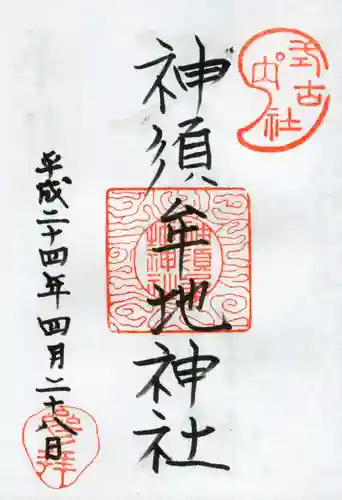 式内古社
神須牟地神社
神須牟地神社
平成二十四年四月二十八日
参拝